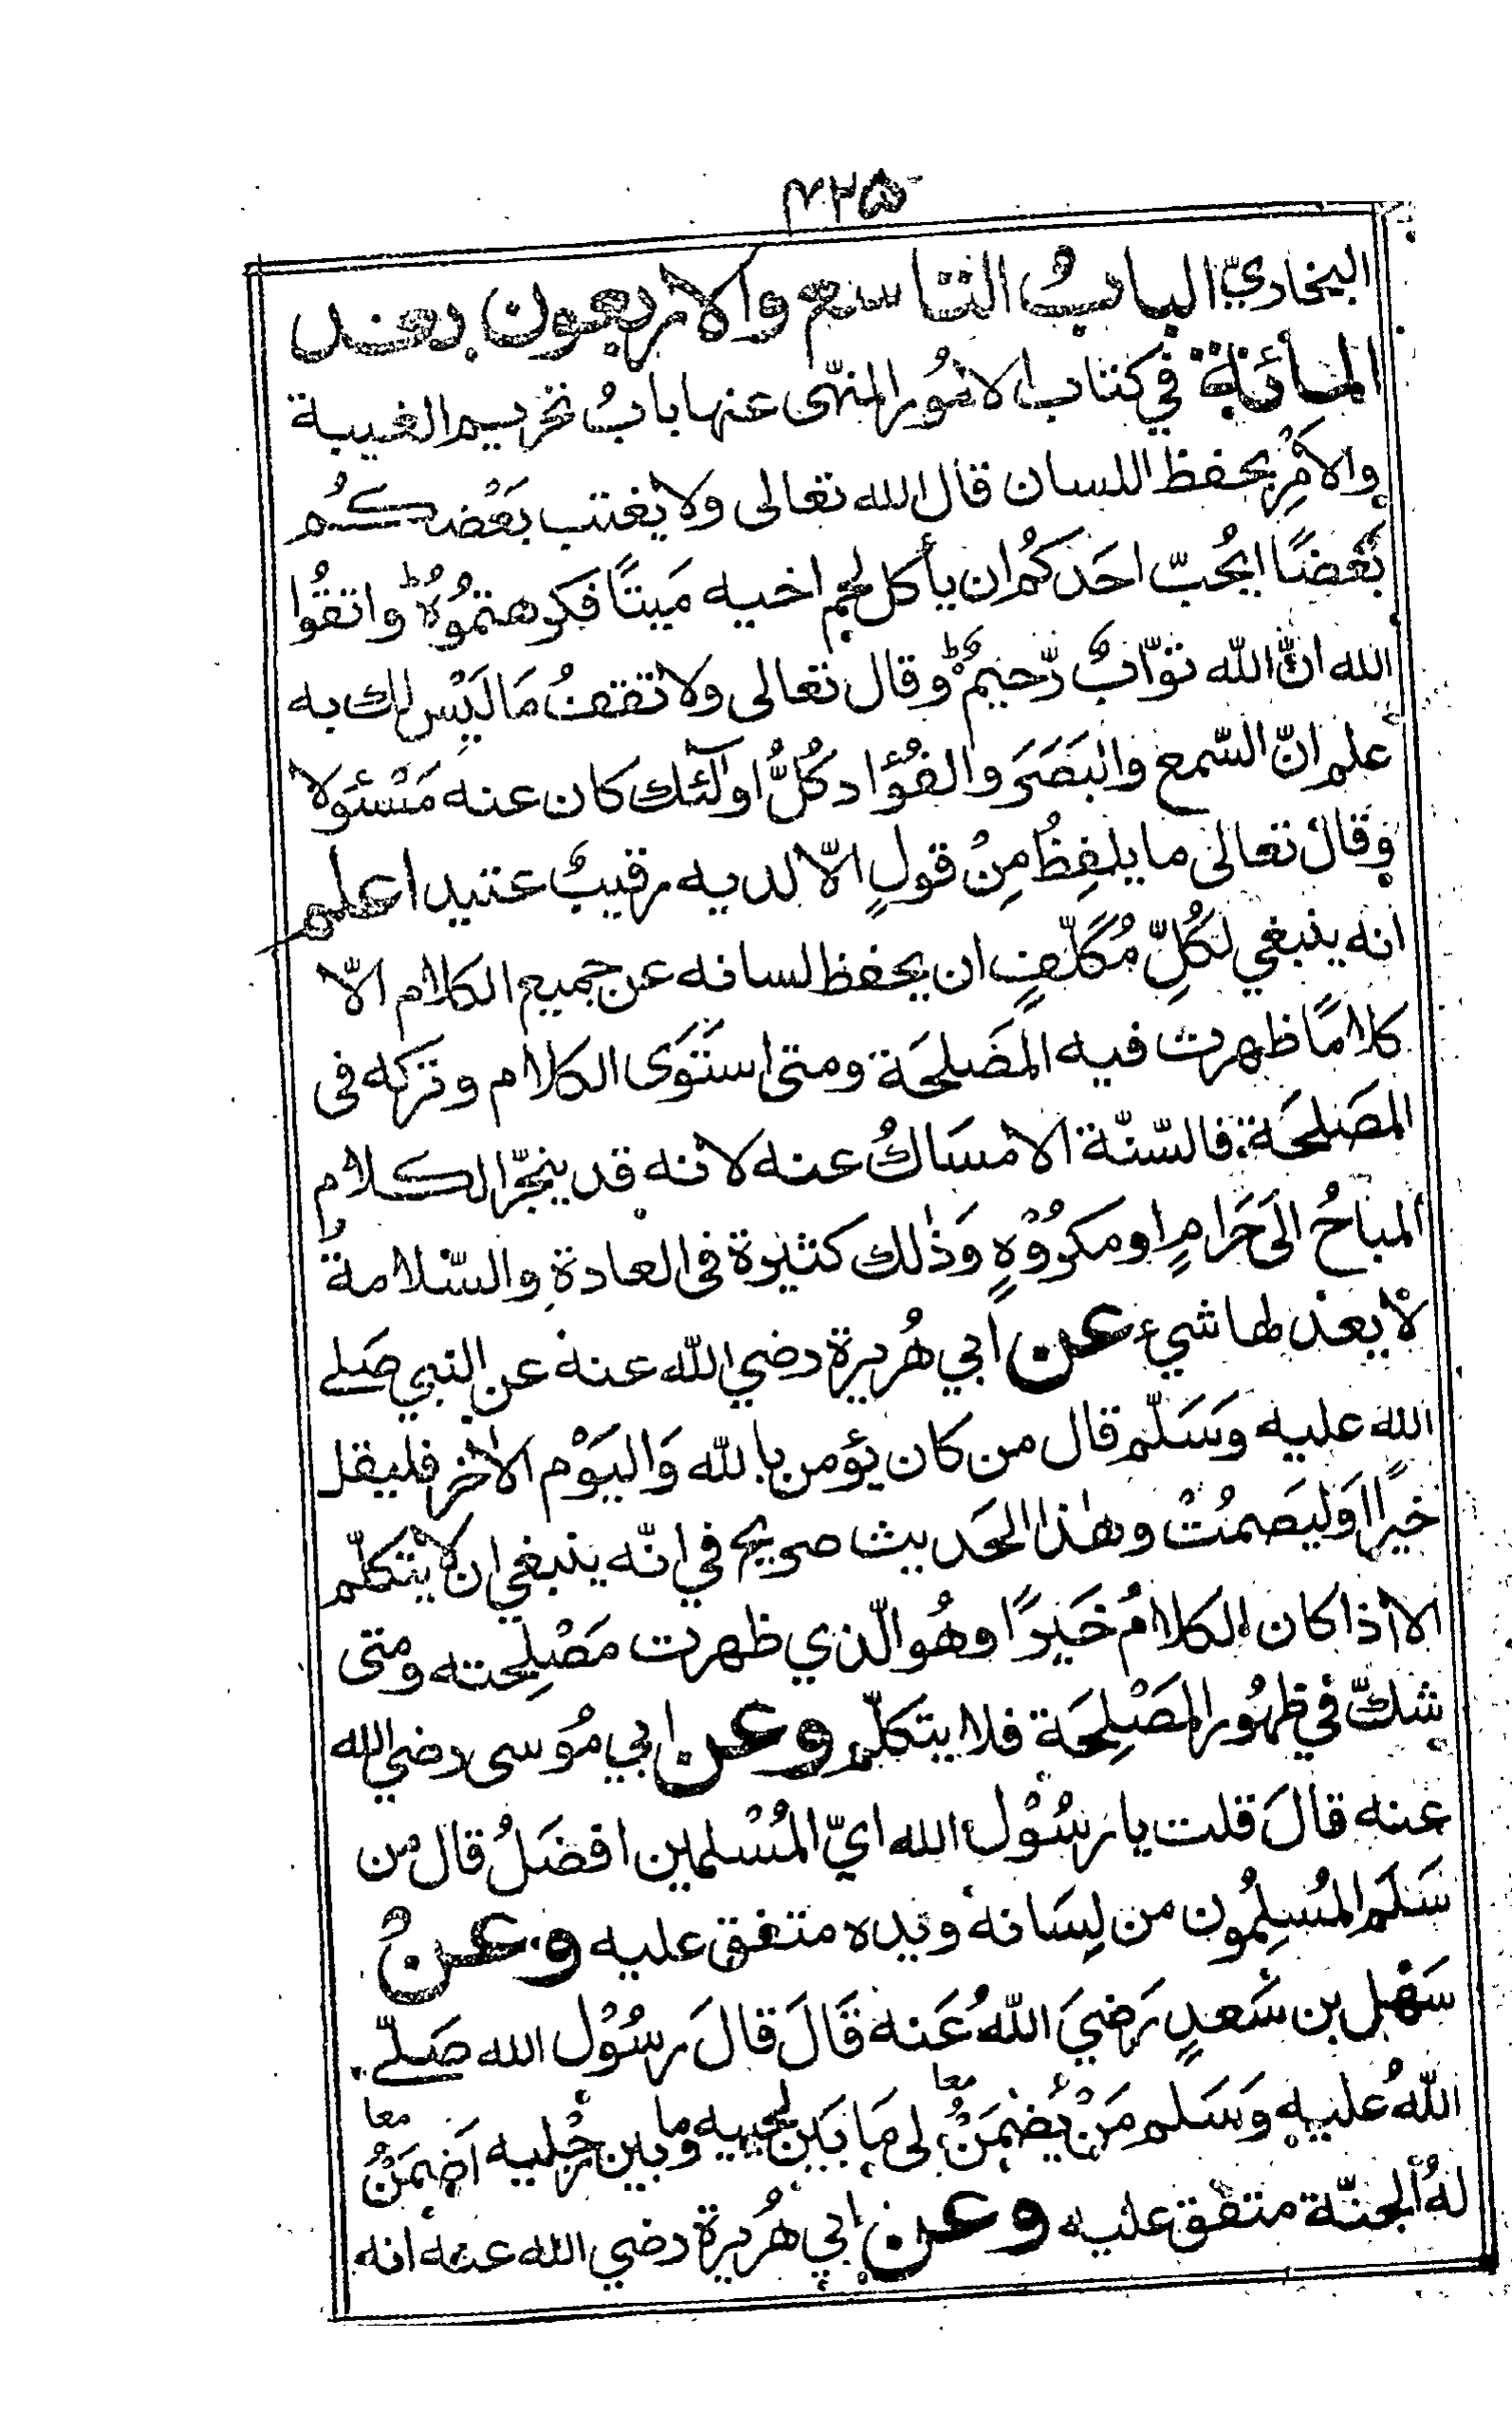 ۴۲۵
البخاريّ الباب التاسع والاربعون بعد
المائة في كتاب الامُور المنهّى عنها بابُ تحريم الغيبة
والامْرِ بحفظ اللسان قال الله تعالى ولا يغتب بَعْضكُم
بَعْضًا ايُحبّ احَدكُم ان يأكل لحم اخيه مَيتًا فكرهتموُهُ ط واتقُوا
الله انّ الله توّابٌ رّحيمٌ ط وقال تعالى ولا تقفُ مَا لَيْسَ لك به
علم انّ السّمع والبَصَرَ والفُؤاد كُلُّ اولٰٓئك كان عنه مَسْئوَلا
وقال تعالى ما يلفِظُ مِنْ قولٍ الّا لديه رقيبٌ عتيد اعلم
انه ينبغي لكُلِّ مُكلّفٍ ان يحفظ لسانه عن جميع الكلام الّا
كلامًا ظهرت فيه المَصَلحَة ومتى استَوَى الكلام وتركه فى
المصَلحَة فالسّنّة الامسَاكُ عنه لانه قد ينجرّ الكلام
المباحُ الَى حَرامٍ او مكروُهٍ وَذٰلك كثيرة فى العادةِ والسّلامة
لْا يعدلها شيء عن ابي هُريرة رضي الله عنه عن النبي صَلى
الله عليه وَسَلّم قال من كان يؤمن بالله وَاليَوْم الاٰخر فليقل
خيرًا اوَليَصمُتْ وهٰذا الحَديث صريح في انّه ينبغي ان لْا يتكلّم
الا اذا كان الكلامُ خَيرًا وهُو الّذي ظهرت مَصْلِحته ومتى
شكّ في ظهُور المَصْلِحَة فلا يتكلّم وعن ابي مُوسى رضي الله
عنه قالَ قلت يا رسُوْل الله ايّ المُسْلمين افضَلُ قال من
سَلَم المُسلِمُون من لِسَانه ويده متفق عليه وعنْ
سَهْل بن سَعدٍ رَضيَ اللهُ عَنه قَالَ قالَ رسُوْل الله صَلّى
اللهُ عليه وَسَلم مَنْ يَضمَنُْ معا لى مَا بَيَن لحييه وما بين رجْليه اَضمَنُْ معا
لهُ الجنّة متفق عليه وعن ابي هُريرة رضي الله عنه انه